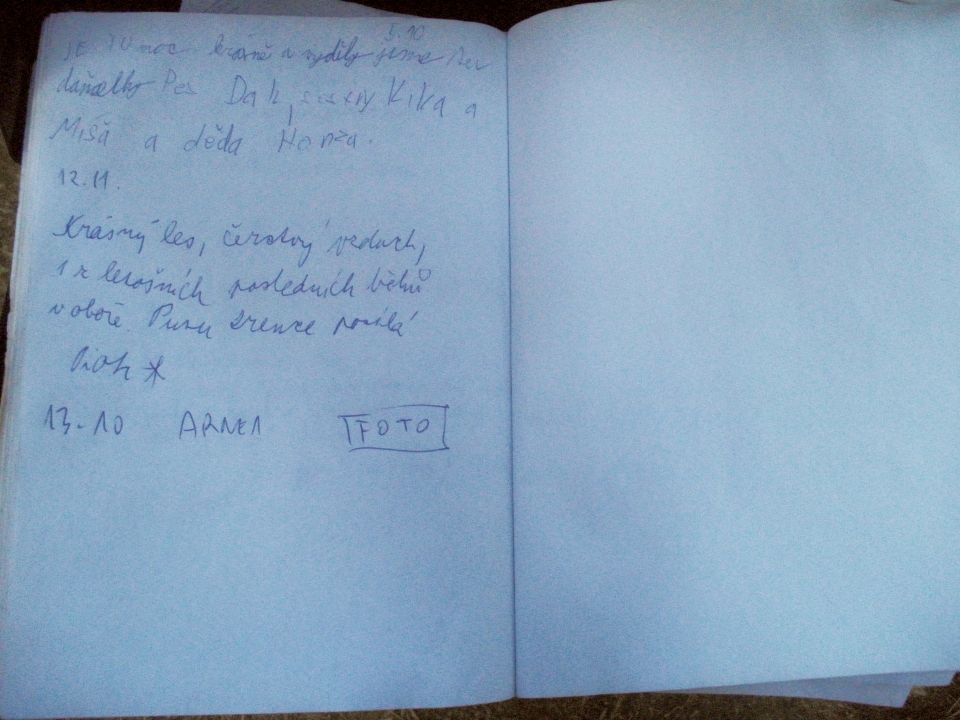 5.10
JE TU moc krásně a vyděly jsme
daňcelky Pes Dak, sestry Kika a
Míša a děda Honza.
12.11.
Krásný les, čerstvý vzduch,
1 z letošních posledních běhů
v oboře. Pusu Srence posílá
13.10 ARNE1 FOTO